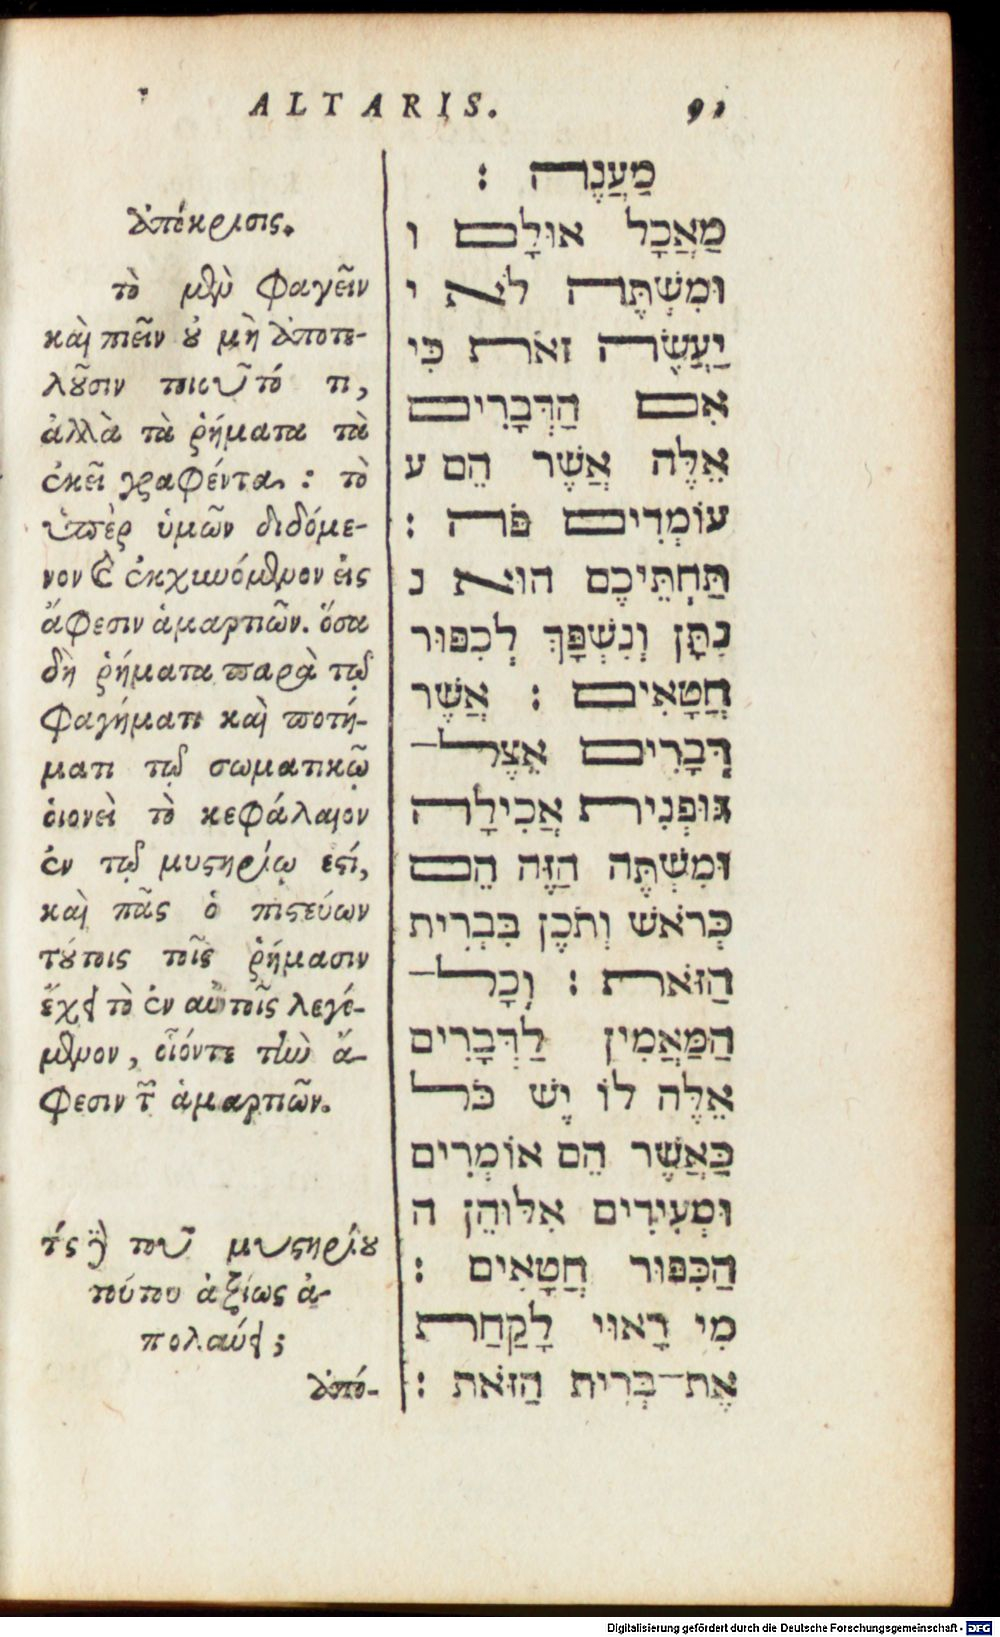 ALTARIS. 91
ἀπόκρισις.
τὸ μὲν φαγεῖν
καὶ πιεῖν οὐ μὴ ἀποτε-
λοῦσιν τοιοῦτό τι,
ἀλλὰ τὰ ῥήματα τὰ
ἐκεῖ γραφέντα : τὸ
ὑπὲρ ὑμῶν διδόμε-
νον καὶ ἐκχυνόμενον εἰς
ἄφεσιν ἁμαρτιῶν. ὅσα
δὴ ῥήματα παρὰ τῷ
φαγήματι καὶ ποτή-
ματι τῷ σωματικῷ
οἱονεὶ τὸ κεφάλαιον
ἐν τῷ μυστηρίῳ εστί,
καὶ πᾶς ὁ πιστεύων
τούτοις τοῖς ῥήμασιν
ἔχει τὸ ἐν αὐτοῖς λεγό-
μενον, οἷόντε τὴν ἄ-
φεσιν τῶν ἁμαρτιῶν.
τίς δὲ τοῦ μυστηρίου
τούτου ἀξίως ἀ-
πολαύει;
ἀπό-
מַעֲנֶה :
מַאֲכָל אוּלָם ו
וּמִשְׁתֶּה לֹא י
יַעֲשֶׂה זֹאת כִּי
אִם הַדְּבָרִים
אֵלֶּה אֲשֶׁר הֵם ע
עוֹמְדִים פֹּה :
תַּחְתֵּיכֶם הוּא נ
נִתָּן וְנִשְׁפָּךְ לְכִפּוּר
חֲטָאִים : אֲשֶׁר
דְּבָרִים אֵצֶל־
גּוּפְנִית אֲכִילָה
וּמִשְׁתֶּה הַזֶּה הֵם
כְּרֹאשׁ וְתֹכֶן בִּבְרִית
הַזֹּאת : וְכָל־
הַמַּאֲמִין לַדְּבָרִים
אֵלֶּה לוֹ יֶשׁ כֹּל
כַּאֲשֶׁר הֵם אוֹמְרִים
וּמְעִידִים אִלּוּהֵן ה
הַכִּפּוּר חֲטָאִים :
מִי רָאוּי לָקַחַת
אֶת־בְּרִית הַזֹּאת :
Digitalisierung gefördert durch die Deutsche Forschungsgemeinschaft - DFG